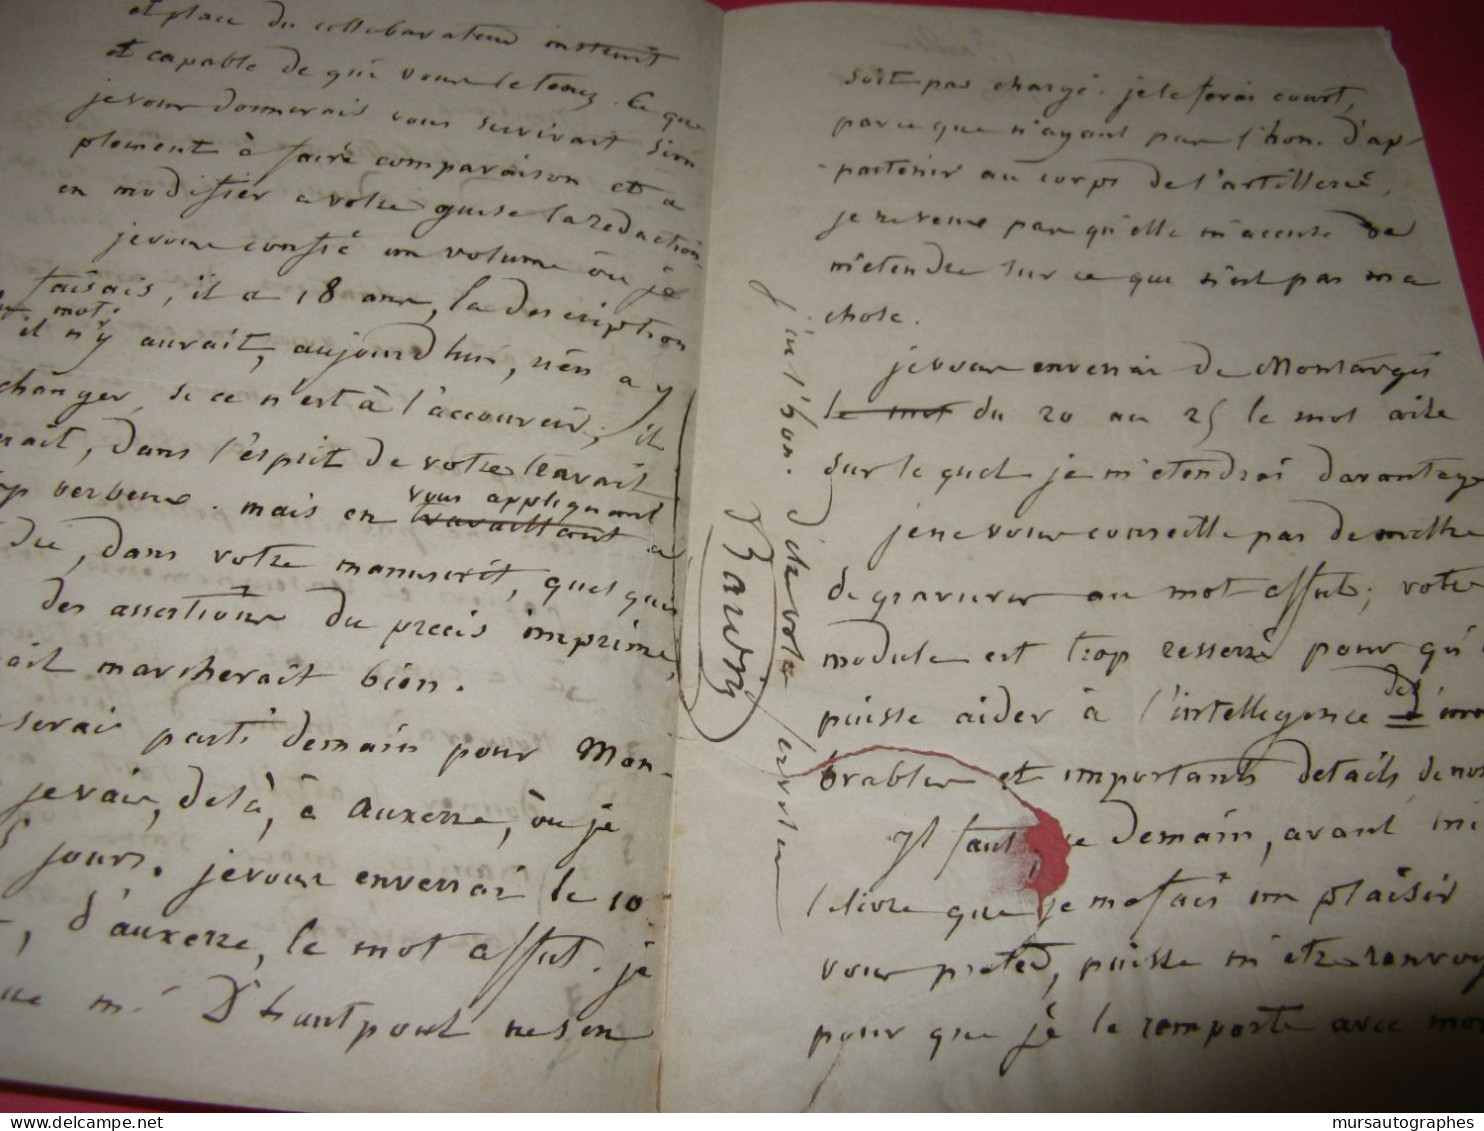 et place du collaborateur instruit
et capable de qui vous le tenez. Ce que
je vous donnerais vous servirait sim
plement à faire comparaison et à
en modifier a votre guise la rédaction.
je vous confie un volume où je
faisais, il a 18 ans, la description
mot.
il n'y aurait, aujourd'hui, rien a y
changer, si ce n'est à l'accourcir, il
dans l'esprit de votre travail
verbeux. mais en vous appliquant
travaillant a
dans votre manuscrit, quelques
des assertions du précis imprimé,
marcherait bien.
serai parti demain pour Mon-
je vais, de là, à auxerre, où je
jours. je vous enverrai le 10
d'auxerre, le mot affut. je
Dhautpoul ne son
soit pas chargé. je le ferai court,
parce que n'ayant pas l'hon. d'ap-
-partenir au corps de l'artillerie,
je ne veux pas qu'elle m'accuse de
m'etendre sur ce qui n'est pas ma
chose.
je vous enverrai de Montargis
le mot du 20 au 25 le mot
sur le quel je m'etendrai davantage
je ne vous conseille pas de mettre
de gravures au mot affut; votre
module est trop resserré pour qu'
puisse aider à l'intelligence des
et importants details de
Il faut demain, avant
le livre que je me fais un plaisir
vous preter, puisse m'etre renvoyé
pour que je le remporte avec moi
j'ai l'hon. d'etre votre serviteur
Bardin
mursautographes
delcampe.net